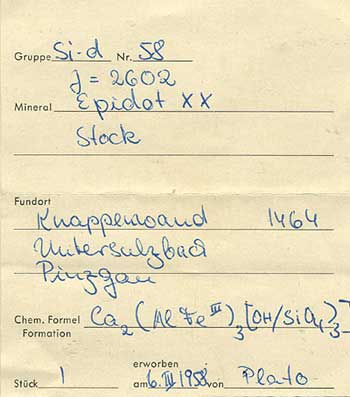 Gruppe Si-d Nr. 58
J = 2602
Mineral Epidot XX
Stock
Fundort
Knappenwand 1464
Untersulzbad
Pinzgau
Chem. Formel Ca2(AlFeIII)3[OH/SiO4)3]
Formation
erworben
Stück 1 am 6.III 1958 von Plato